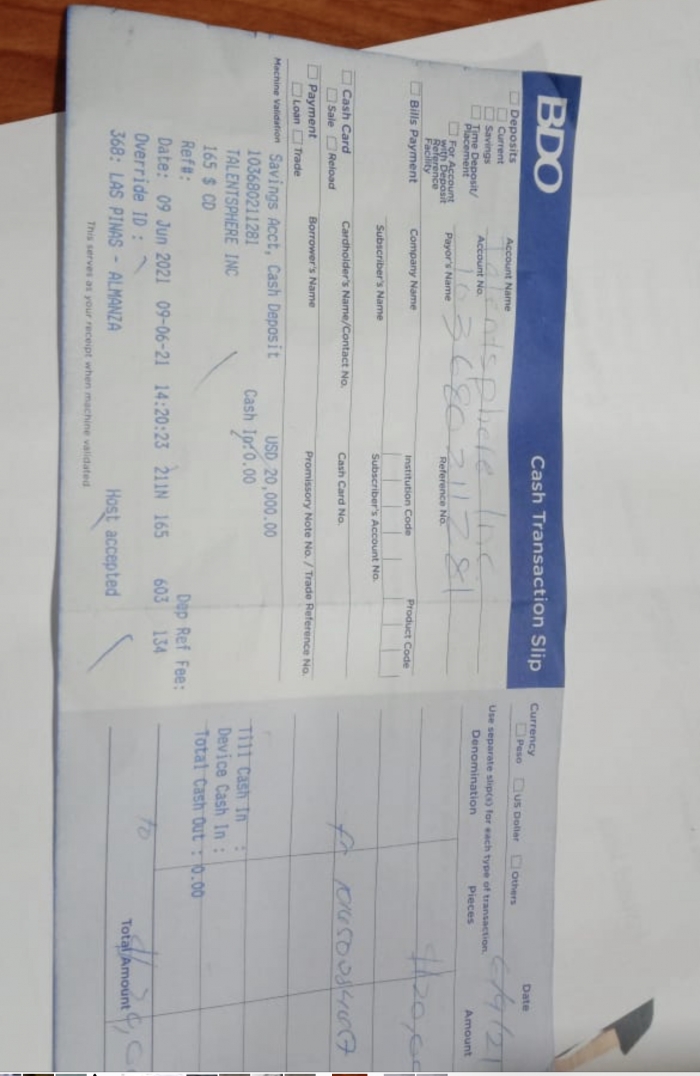 BDO
Cash Transaction Slip
Deposits
Current
Savings
Time Deposit/
Placement
For Account
with Deposit
Reference
Facility
Account Name
Talentsphere Inc
Account No.
103680211281
Payor's Name
Reference No.
Bills Payment
Company Name
Institution Code
Product Code
Subscriber's Name
Subscriber's Account No.
Cash Card
Sale
Reload
Cardholder's Name/Contact No.
Cash Card No.
Payment
Loan
Trade
Borrower's Name
Promissory Note No. / Trade Reference No.
Machine Validation
Savings Acct, Cash Deposit USD 20,000.00
103680211281 Cash In 0.00
TALENTSPHERE INC
165 $ CD
Ref#: Dep Ref Fee:
Date: 09 Jun 2021 09-06-21 14:20:23 211N 165 603 134
Override ID :
368: LAS PINAS - ALMANZA Host accepted
This serves as your receipt when machine validated
Currency
Peso
US Dollar
Others
Date
6/9/21
Use separate slip(s) for each type of transaction.
Denomination
Pieces
Amount
Till Cash In :
Device Cash In :
Total Cash Out : 0.00
Total Amount